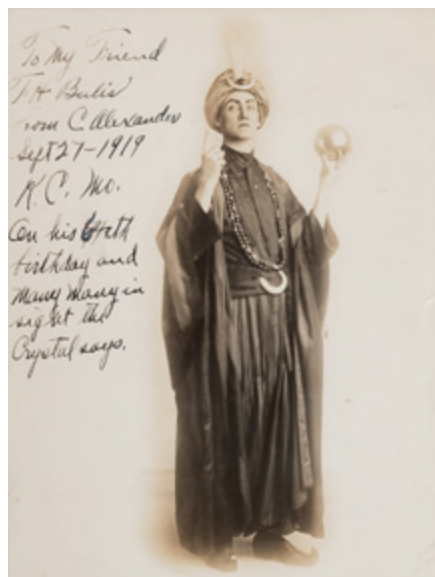 To My Friend
F H Bulis
From C Alexander
Sept 27-1919
K.C. Mo.
On his
birthday and
many many in
sight the
Crystal says.